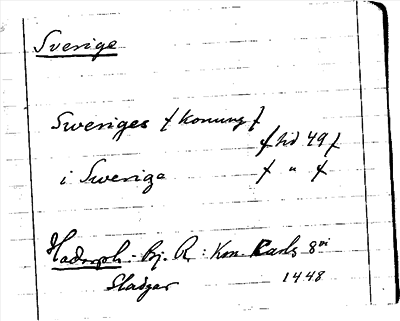 Sverige
Sweriges { konung }
{ hd 49 }
i Swerige { " }
Hadorph: Bj. R: Kon. Karls 8
Stadgar 1448